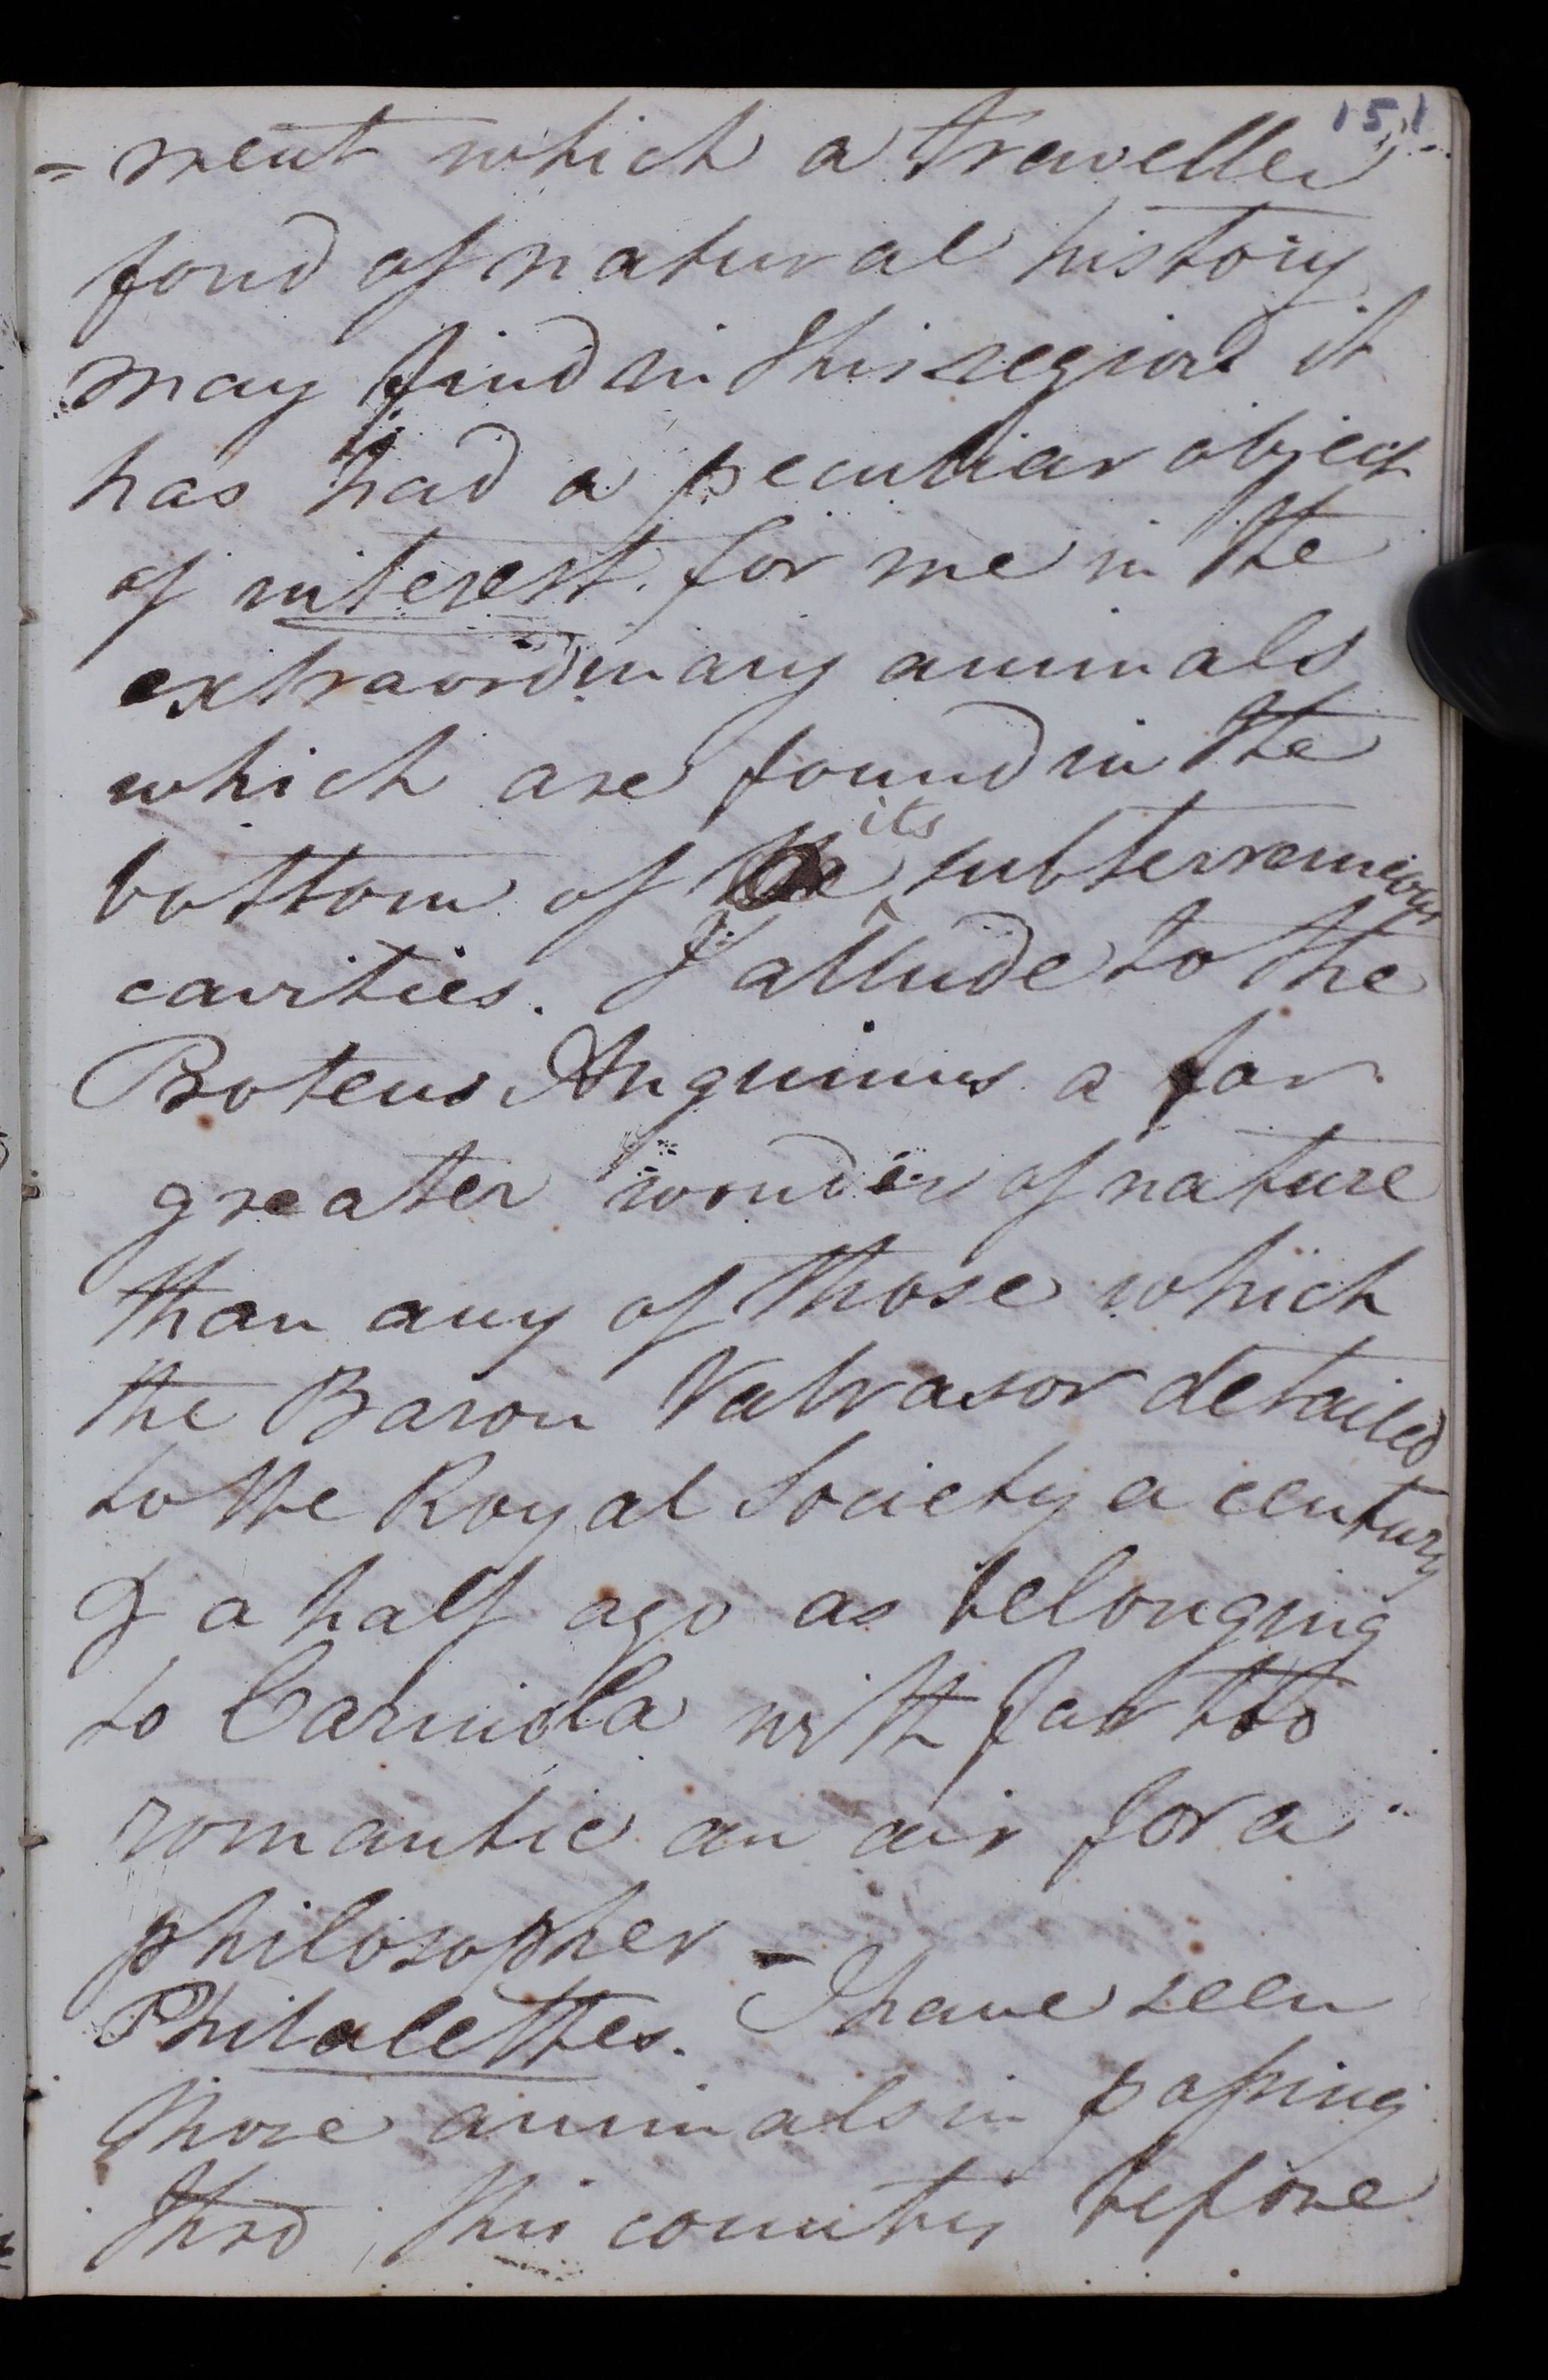 151
= ment which a traveller
fond of natural history
may find in this region it
has had a peculiar object
of interest for me in the
extraordinary animals
which are found in the
its
bottom of the subterraneous
cavities. I allude to the
Proteus Anguinus a far
greater wonder of nature
than any of those which
the Baron Valvasor detailed
to the Royal Society a century
& a half ago as belonging
to Carniola with far too
romantic an air for a
philosopher -
Philalethes. I have seen
those animals in passing
thro this country before